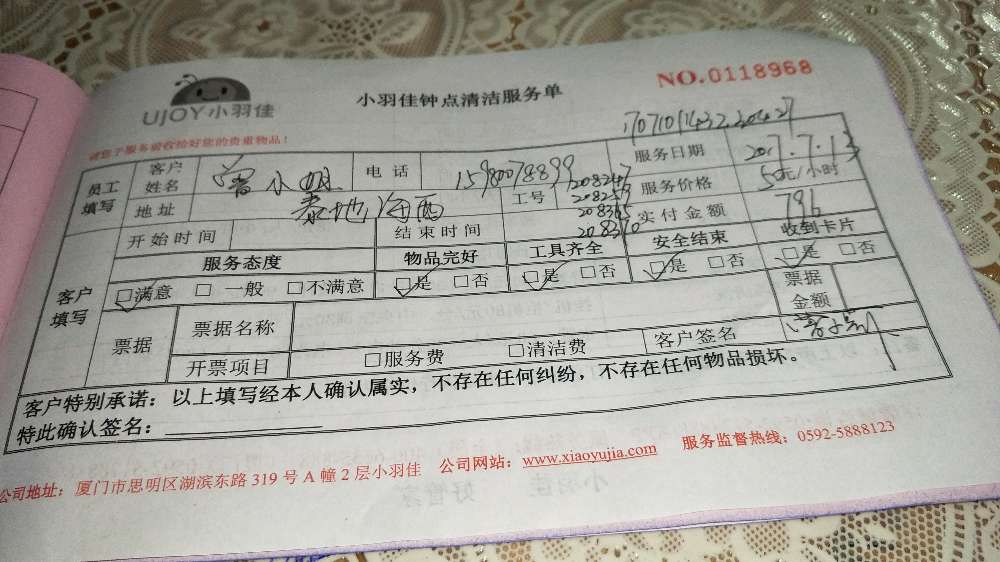 UJOY小羽佳
小羽佳钟点清洁服务单
NO.0118968
请您于服务前收拾好您的贵重物品！
员工填写
客户姓名
小姐
电话
15980078899
服务日期
2017.7.13
地址
泰地海西
工号
208247
208259
208365
208370
服务价格
50元/小时
开始时间
结束时间
实付金额
796
客户填写
服务态度
物品完好
工具齐全
安全结束
收到卡片
□满意 □一般 □不满意
□是 □否
□是 □否
□是 □否
□是 □否
票据
票据名称
票据金额
开票项目
□服务费 □清洁费
客户签名
客户特别承诺：以上填写经本人确认属实，不存在任何纠纷，不存在任何物品损坏。
特此确认签名：
公司地址：厦门市思明区湖滨东路 319 号 A 幢 2 层小羽佳 公司网站：www.xiaoyujia.com 服务监督热线：0592-5888123